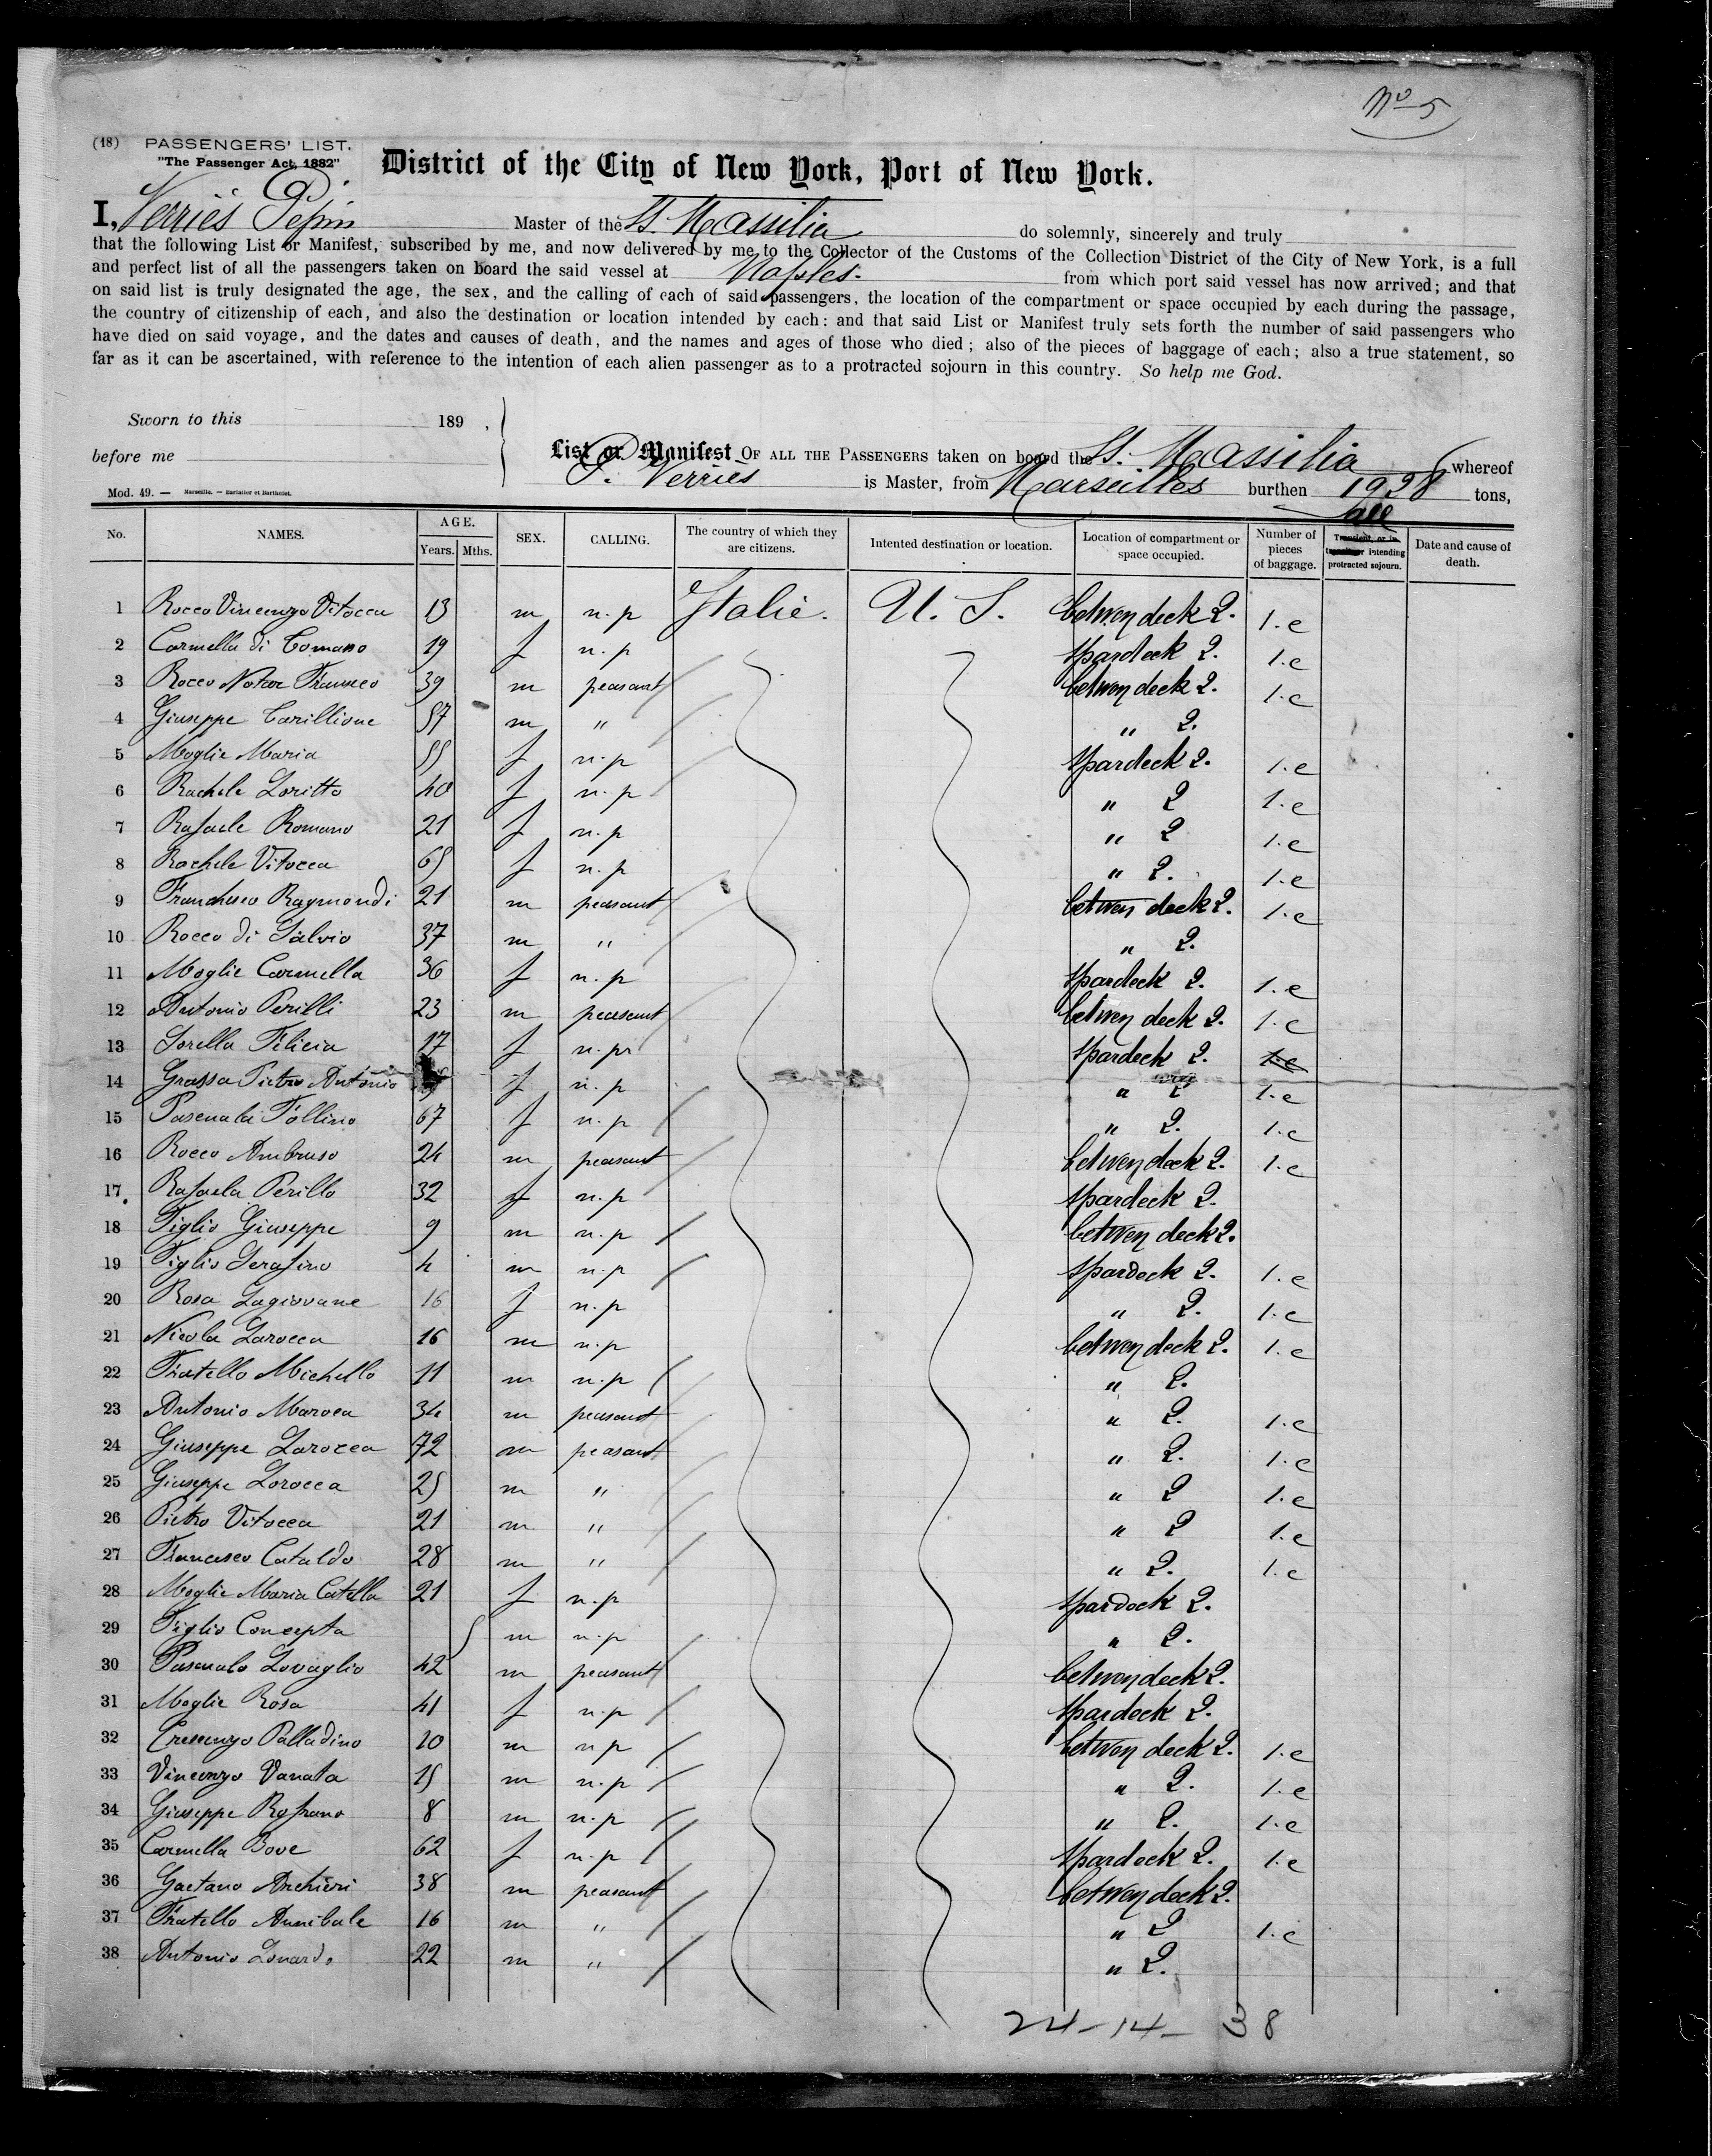 Nº 5
(18) PASSENGERS' LIST.
"The Passenger Act, 1882"
District of the City of New York, Port of New York.
I, Verriés Pepin Master of the St. Massilia do solemnly, sincerely and truly
that the following List or Manifest, subscribed by me, and now delivered by me to the Collector of the Customs of the Collection District of the City of New York, is a full
and perfect list of all the passengers taken on board the said vessel at Naples. from which port said vessel has now arrived; and that
on said list is truly designated the age, the sex, and the calling of each of said passengers, the location of the compartment or space occupied by each during the passage,
the country of citizenship of each, and also the destination or location intended by each: and that said List or Manifest truly sets forth the number of said passengers who
have died on said voyage, and the dates and causes of death, and the names and ages of those who died; also of the pieces of baggage of each; also a true statement, so
far as it can be ascertained, with reference to the intention of each alien passenger as to a protracted sojourn in this country. So help me God.
Sworn to this 189 ,
before me
List or Manifest OF ALL THE PASSENGERS taken on board the St. Massilia whereof
P. Verriés is Master, from Marseilles burthen 1938 tons,
Mod. 49. — Marseille. — Barlatier et Barthelet.
No. NAMES. AGE. Years. Mths. SEX. CALLING. The country of which they are citizens. Intented destination or location. Location of compartment or space occupied. Number of pieces of baggage. Transient, or in intending protracted sojourn. Date and cause of death.
all
1 Rocco Vincenzo Vitocca 13 m n.p Italie. U. S. betwen deck 2. 1.e
2 Carmella di Comano 19 f n.p spardeck 2. 1.e
3 Rocco 39 m peasant betwen deck 2. 1.e
4 Giuseppe Carillione 57 m " " 2.
5 Moglie Maria 55 f n.p spardeck 2. 1.e
6 Rachele Loritto 40 f n.p " 2 1.e
7 Rafaele Romano 21 f n.p " 2 1.e
8 Rachele Vitocca 65 f n.p " 2. 1.e
9 Franchesco Raymondi 21 m peasant betwen deck 2. 1.e
10 Rocco di Salvio 37 m " " 2.
11 Moglie Carmella 36 f n.p spardeck 2. 1.e
12 Antonio Perilli 23 m peasant betwen deck 2. 1.e
13 Sorella Felicia 17 f n.p spardeck 2. 1.e
14 Grassa Pietro Antonio f n.p " 2 1.e
15 Pascuala Follino 67 f n.p " 2. 1.e
16 Rocco Ambruso 24 m peasant betwen deck 2. 1.e
17 Rafaela Perillo 32 f n.p spardeck 2.
18 Figlio Giuseppe 9 m n.p betwen deck 2.
19 Figlio Serafino 4 m n.p spardeck 2. 1.e
20 Rosa Lagiovane 16 f n.p " 2. 1.e
21 Nicola Larocca 16 m n.p betwen deck 2. 1.e
22 Fratello Michello 11 m n.p " 2.
23 Antonio Maroca 34 m peasant " 2. 1.e
24 Giuseppe Larocca 72 m peasant " 2. 1.e
25 Giuseppe Lorocca 25 m " " 2 1.e
26 Pietro Vitocca 21 m " " 2 1.e
27 Francesco Cataldo 28 m " " 2. 1.e
28 Moglie Maria Catella 21 f n.p spardeck 2.
29 Figlio Concepta 5 m n.p " 2.
30 Pascualo Lovaglio 42 m peasant betwen deck 2.
31 Moglie Rosa 41 f n.p spardeck 2.
32 Crescenzo Palladino 10 m n.p betwen deck 2. 1.e
33 Vincenzo Vanata 15 m n.p " 2. 1.e
34 Giuseppe Rofrano 8 m n.p " 2. 1.e
35 Carmella Bove 62 f n.p spardeck 2. 1.e
36 Gaetano Anchieri 38 m peasant betwen deck 2.
37 Fratello Annibale 16 m " " 2 1.e
38 Antonio Lonardo 22 m " " 2.
24-14- 38